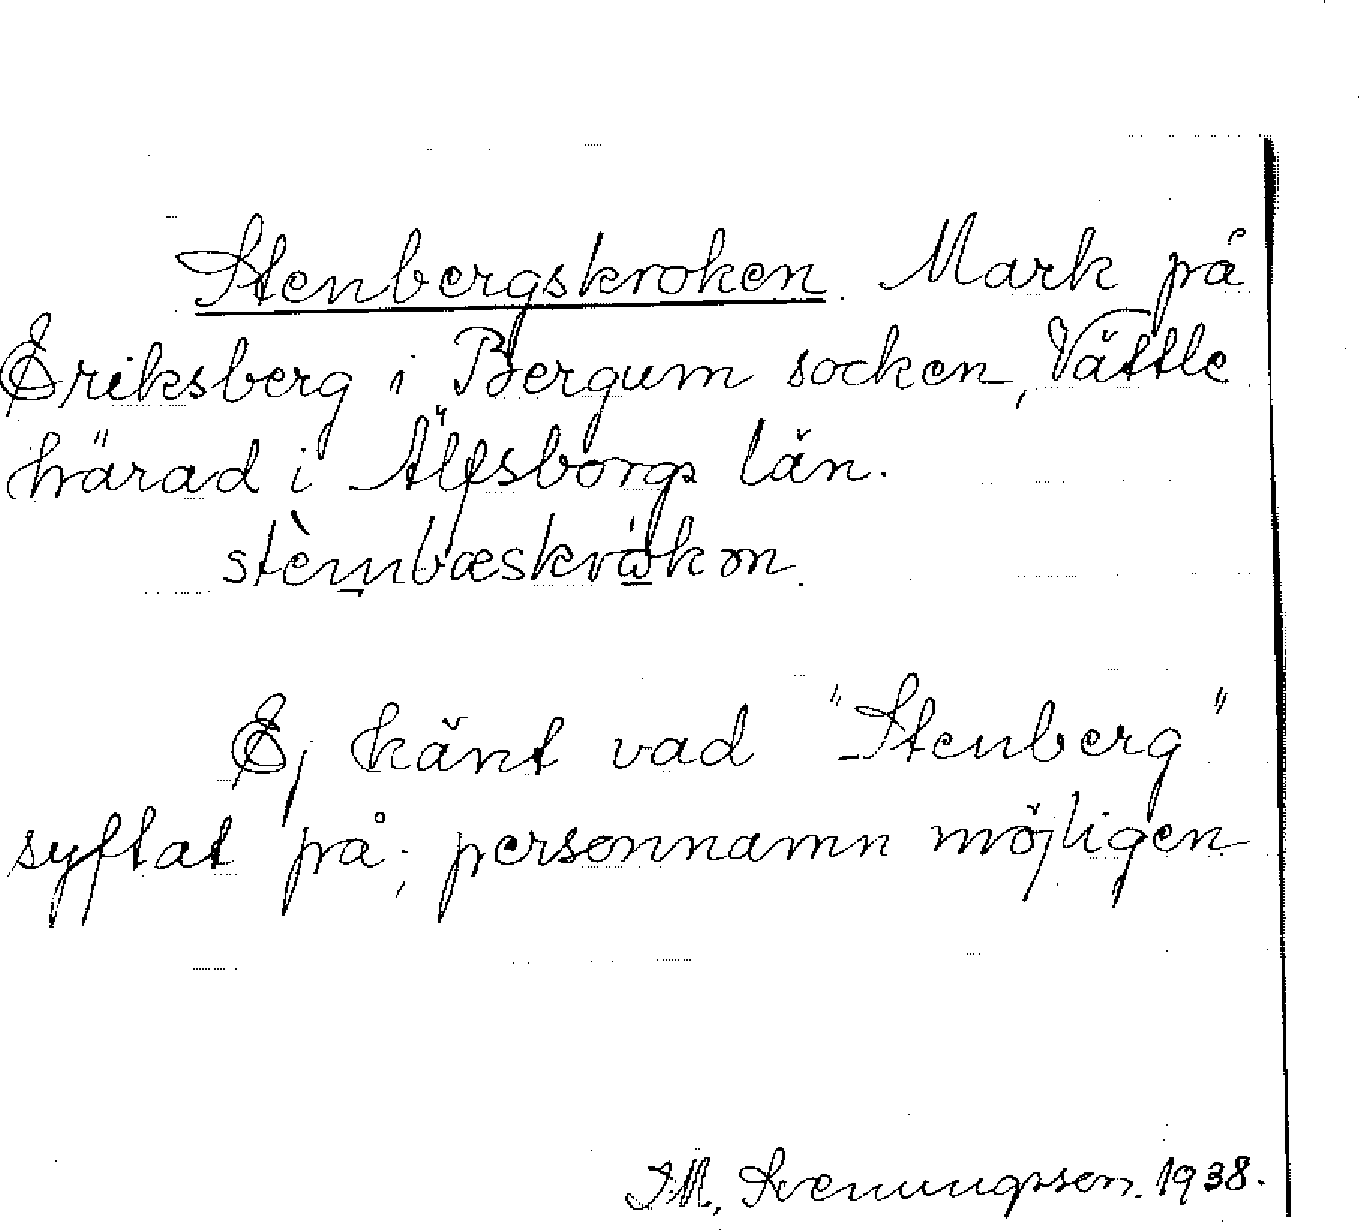 Stenbergskroken. Mark på
Eriksberg i Bergum socken, Vättle
härad i Älfsborgs län.
stèmbæskråkɷn.
Ej känt vad "Stenberg"
syftat på; personnamn möjligen
J M. Svenungsson. 1938.